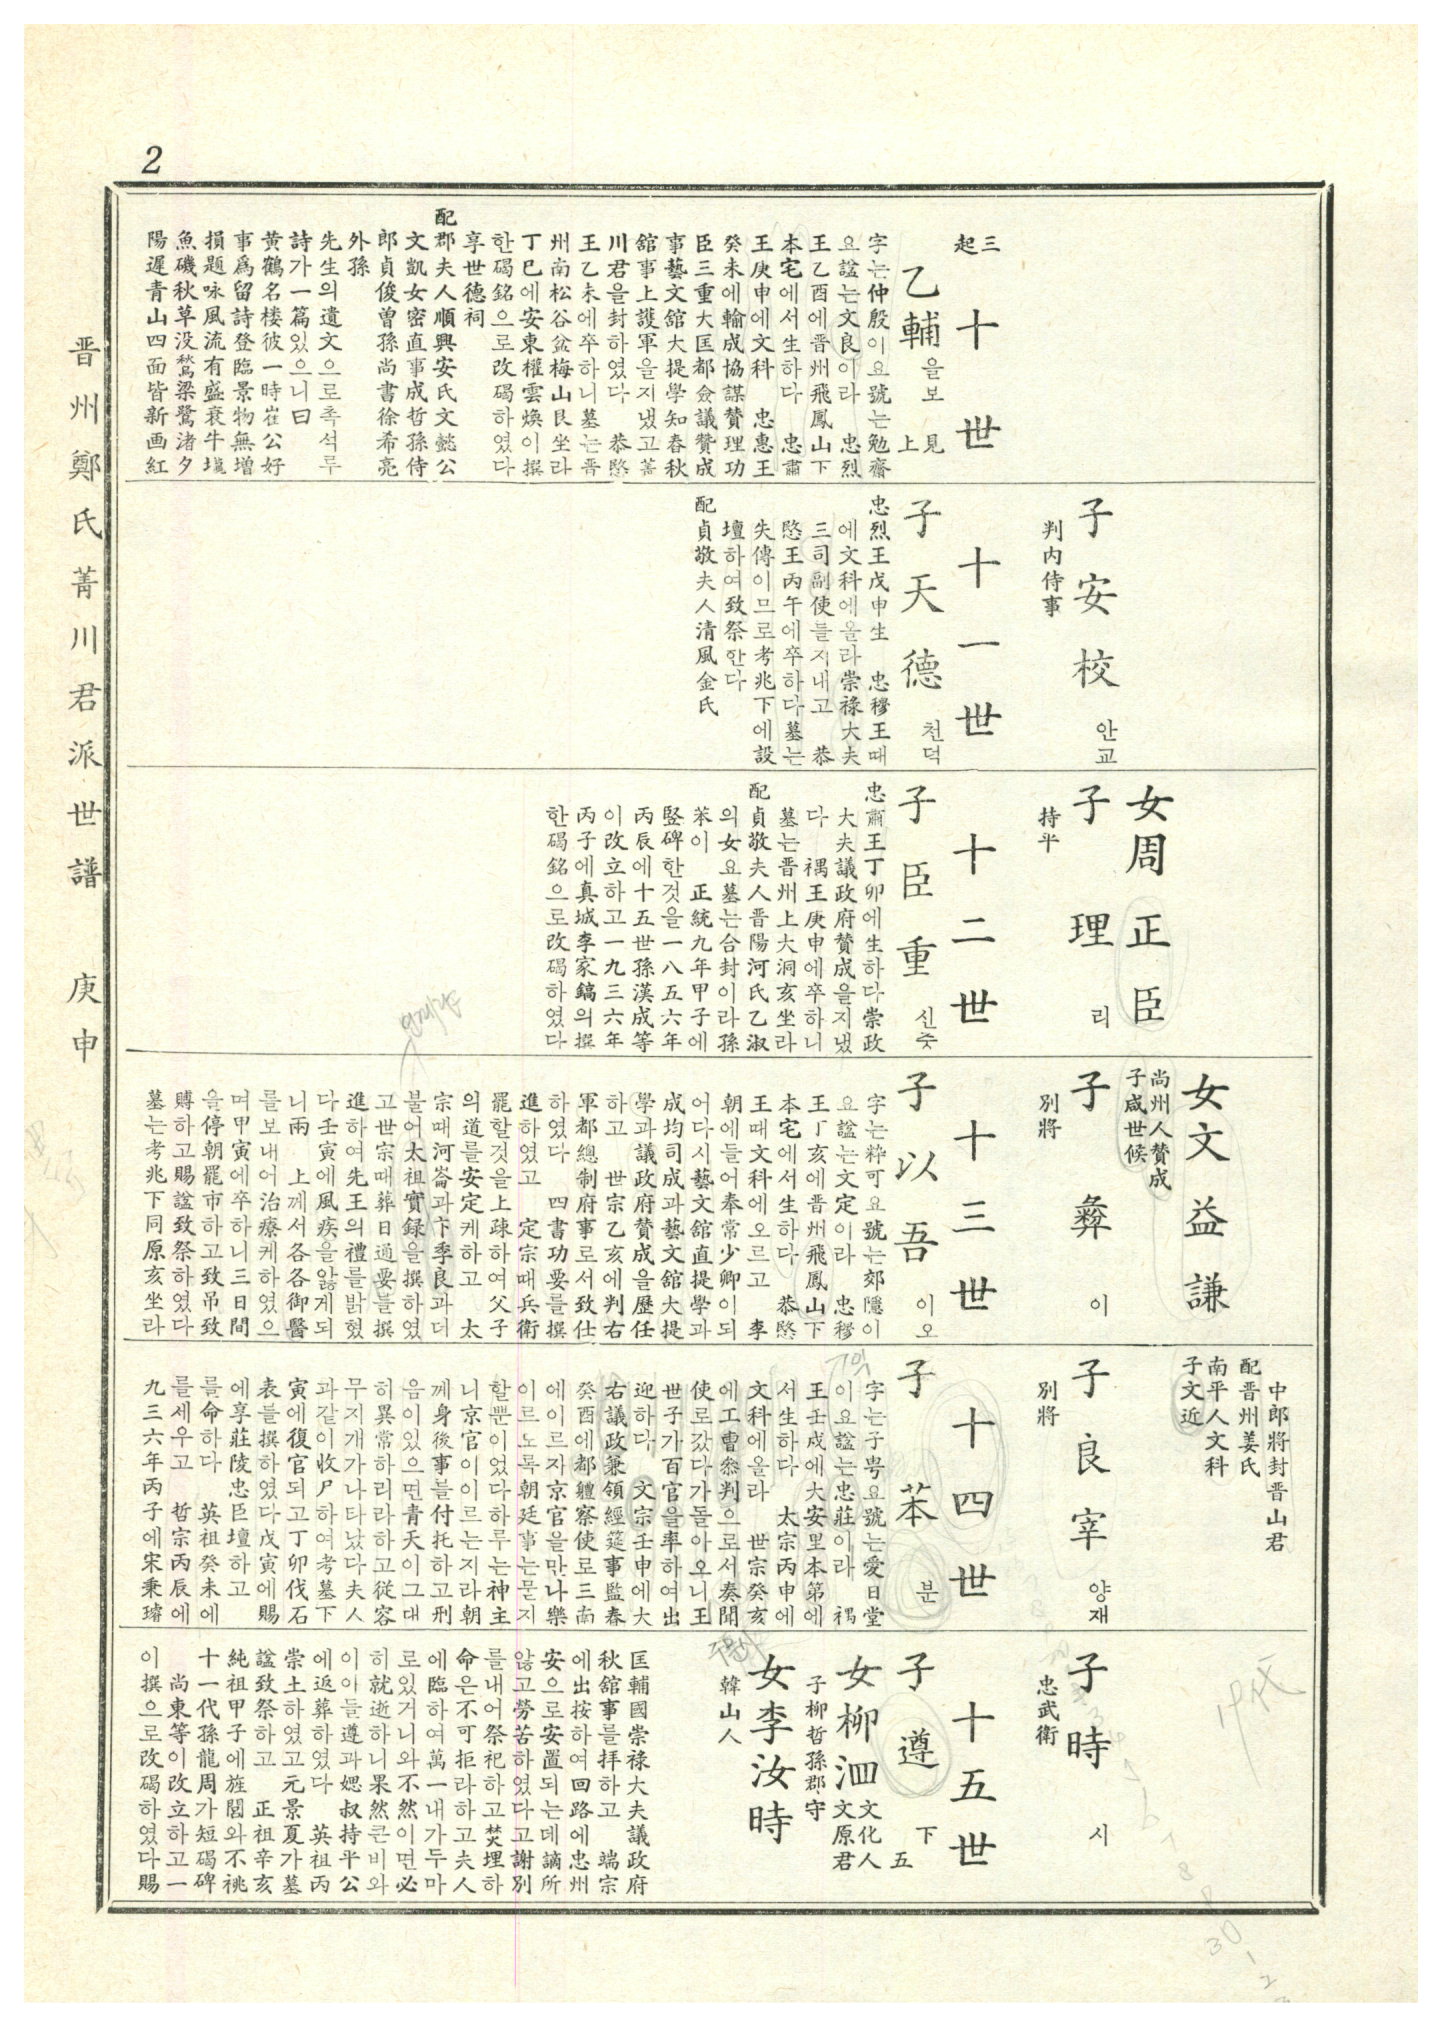 2
晋州鄭氏菁川君派世譜 庚申
三起
十世
乙輔 을보 見上
字는仲殷이요號는勉齋
요諡는文良이라 忠烈
王乙酉에晋州飛鳳山下
本宅에서生하다 忠肅
王庚申에文科 忠惠王
癸未에輸成協謀贊理功
臣三重大匡都僉議贊成
事藝文舘大提學知春秋
舘事上護軍을지냈고菁
川君을封하였다 恭愍
王乙未에卒하니墓는晋
州南松谷盆梅山艮坐라
丁巳에安東權雲煥이撰
한碣銘으로改碣하였다
享世德祠
配郡夫人順興安氏文懿公
文凱女密直事成哲孫侍
郎貞俊曽孫尚書徐希亮
外孫
先生의遺文으로촉석루
詩가一篇있으니曰
黄鶴名楼彼一時崔公好
事爲留詩登臨景物無增
損題咏風流有盛衰牛壠
魚磯秋草没鶖梁鷺渚夕
陽遲青山四面皆新画紅
子安校 안교
判内侍事
十一世
子天德 천덕
忠烈王戊申生 忠穆王때
에文科에올라崇祿大夫
三司副使를지내고 恭
愍王丙午에卒하다墓는
失傳이므로考兆下에設
壇하여致祭한다
配貞敬夫人清風金氏
女周正臣
子理 리
持平
十二世
子臣重 신중
忠肅王丁卯에生하다崇政
大夫議政府贊成을지냈
다 禑王庚申에卒하니
墓는晋州上大洞亥坐라
配貞敬夫人晋陽河氏乙淑
의女요墓는合封이라孫
苯이 正統九年甲子에
竪碑한것을一八五六年
丙辰에十五世孫漢成等
이改立하고一九三六年
丙子에真城李家鎬의撰
한碣銘으로改碣하였다
女文益謙
尚州人贊成
子咸世候
子彛 이
別將
十三世
子以吾 이오
字는粹可요號는郊隱이
요諡는文定이라 忠穆
王丁亥에晋州飛鳳山下
本宅에서生하다 恭愍
王때文科에오르고 李
朝에들어奉常少卿이되
어다시藝文舘直提學과
成均司成과藝文舘大提
學과議政府贊成을歷任
하고 世宗乙亥에判右
軍都總制府事로서致仕
하였다 四書功要를撰
進하였고 定宗때兵衛
罷할것을上疎하여父子
의道를安定케하고 太
宗때河崙과卞季良과더
불어太祖實録을撰하였
고世宗때葬日通要를撰
進하여先王의禮를밝혔
다壬寅에風疾을앓게되
니兩 上께서各各御醫
를보내어治療케하였으
며甲寅에卒하니三日間
을停朝罷市하고致吊致
賻하고賜諡致祭하였다
墓는考兆下同原亥坐라
中郎將封晋山君
配晋州姜氏
南平人文科
子文近
子良宰 양재
別將
十四世
子苯 분
字는子㖾요號는愛日堂
이요諡는忠莊이라 禑
王壬戌에大安里本第에
서生하다 太宗丙申에
文科에올라 世宗癸亥
에工曹叅判으로서奏聞
使로갔다가돌아오니王
世子가百官을率하여出
迎하다 文宗壬申에大
右議政兼領經筵事監春
癸酉에都體察使로三南
에이르자京官을만나樂
이르노록朝廷事는묻지
할뿐이었다하루는神主
니京官이이르는지라朝
께身後事를付托하고刑
음이있으면青天이그대
히異常하리라하고從容
무지개가나타났다夫人
과같이收尸하여考墓下
寅에復官되고丁卯伐石
表를撰하였다戊寅에賜
에享莊陵忠臣壇하고
를命하다 英祖癸未에
를세우고 哲宗丙辰에
九三六年丙子에宋秉璿
子時 시
忠武衛
19代
十五世
子遵 下五
女柳泗 文化人 文原君
子柳哲孫郡守
女李汝時
韓山人
匡輔國崇祿大夫議政府
秋舘事를拝하고 端宗
에出按하여回路에忠州
安으로安置되는데謫所
않고勞苦하였다고謝別
를내어祭祀하고焚埋하
命은不可拒라하고夫人
에臨하여萬一내가두마
로있거니와不然이면必
히就逝하니果然큰비와
이아들遵과媤叔持平公
에返葬하였다 英祖丙
崇土하였고元景夏가墓
諡致祭하고 正祖辛亥
純祖甲子에旌閭와不祧
十一代孫龍周가短碣碑
尚東等이改立하고一
이撰으로改碣하였다賜